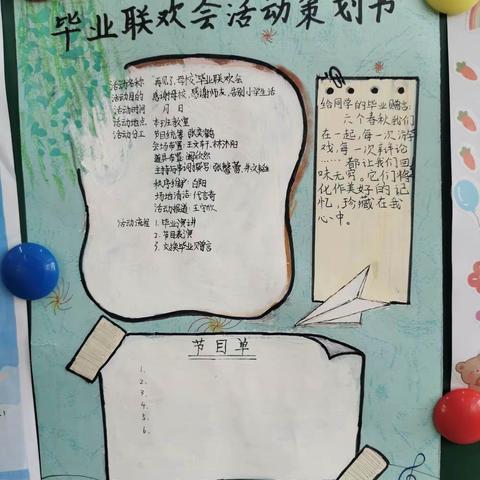 毕业联欢会活动策划书
活动名称 "再见了,母校"毕业联欢会
活动目的 感谢母校,感谢师友,告别小学生活
活动时间 月 日
活动地点 本班教室
活动分工 节目统筹:张奕鹤
会场布置:王文轩、林沐阳
道具布置:
主持与串词撰写:张馨蕾、
秩序维护:白阳
场地清洁:代言奇
活动报道:王宁欣
活动流程 1.毕业演讲
2.节目表演
3.交换毕业赠言
给同学的毕业赠言:
六个春秋,我们
在一起,每一次游
戏,每一次评论
……都让我们回
味无穷。它们将
化作美好的记
忆,珍藏在我
心中。
节目单
1.
2.
3.
4.
5.
6.